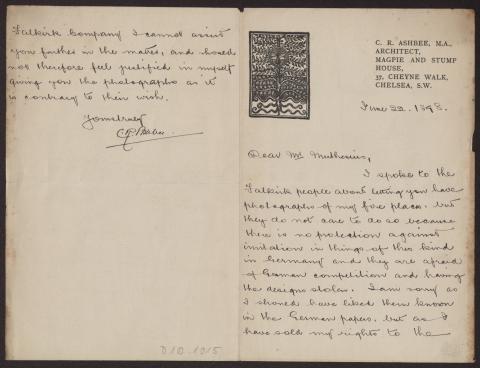 C. R. ASHBEE, M.A.,
ARCHITECT,
MAGPIE AND STUMP
HOUSE,
37, CHEYNE WALK,
CHELSEA, S.W.
June 22. 1898.
Dear Mr Muthesius,
I spoke to the
Falkirk people about letting you have
photographs of my fire places. but
they do not care to do so because
there is no protection against
imitation in things of this kind
in Germany and they are afraid
of German competition and having
the designs stolen. I am sorry as
I should have liked them known
in the German papers. but as I
have sold my rights to the
Falkirk Company I cannot assist
you further in the matter, and should
not therefore feel justified in myself
giving you the photographs as it
is contrary to their wish.
Yours truly
C R Ashbee
D 1 D - 1015